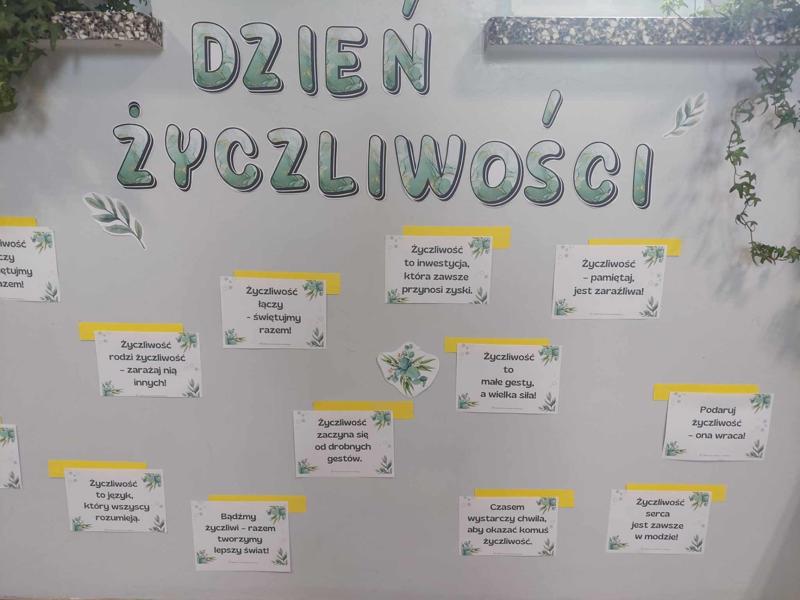 DZIEŃ
ŻYCZLIWOŚCI
Życzliwość
to inwestycja,
która zawsze
przynosi zyski.
Życzliwość
– pamiętaj,
jest zaraźliwa!
Życzliwość
łączy
- świętujmy
razem!
Życzliwość
rodzi życzliwość
– zarażaj nią
innych!
Życzliwość
to
małe gesty,
a wielka siła!
Podaruj
życzliwość
– ona wraca!
Życzliwość
zaczyna się
od drobnych
gestów.
Życzliwość
to język,
który wszyscy
rozumieją.
Bądźmy
życzliwi – razem
tworzymy
lepszy świat!
Czasem
wystarczy chwila,
aby okazać komuś
życzliwość.
Życzliwość
serca
jest zawsze
w modzie!